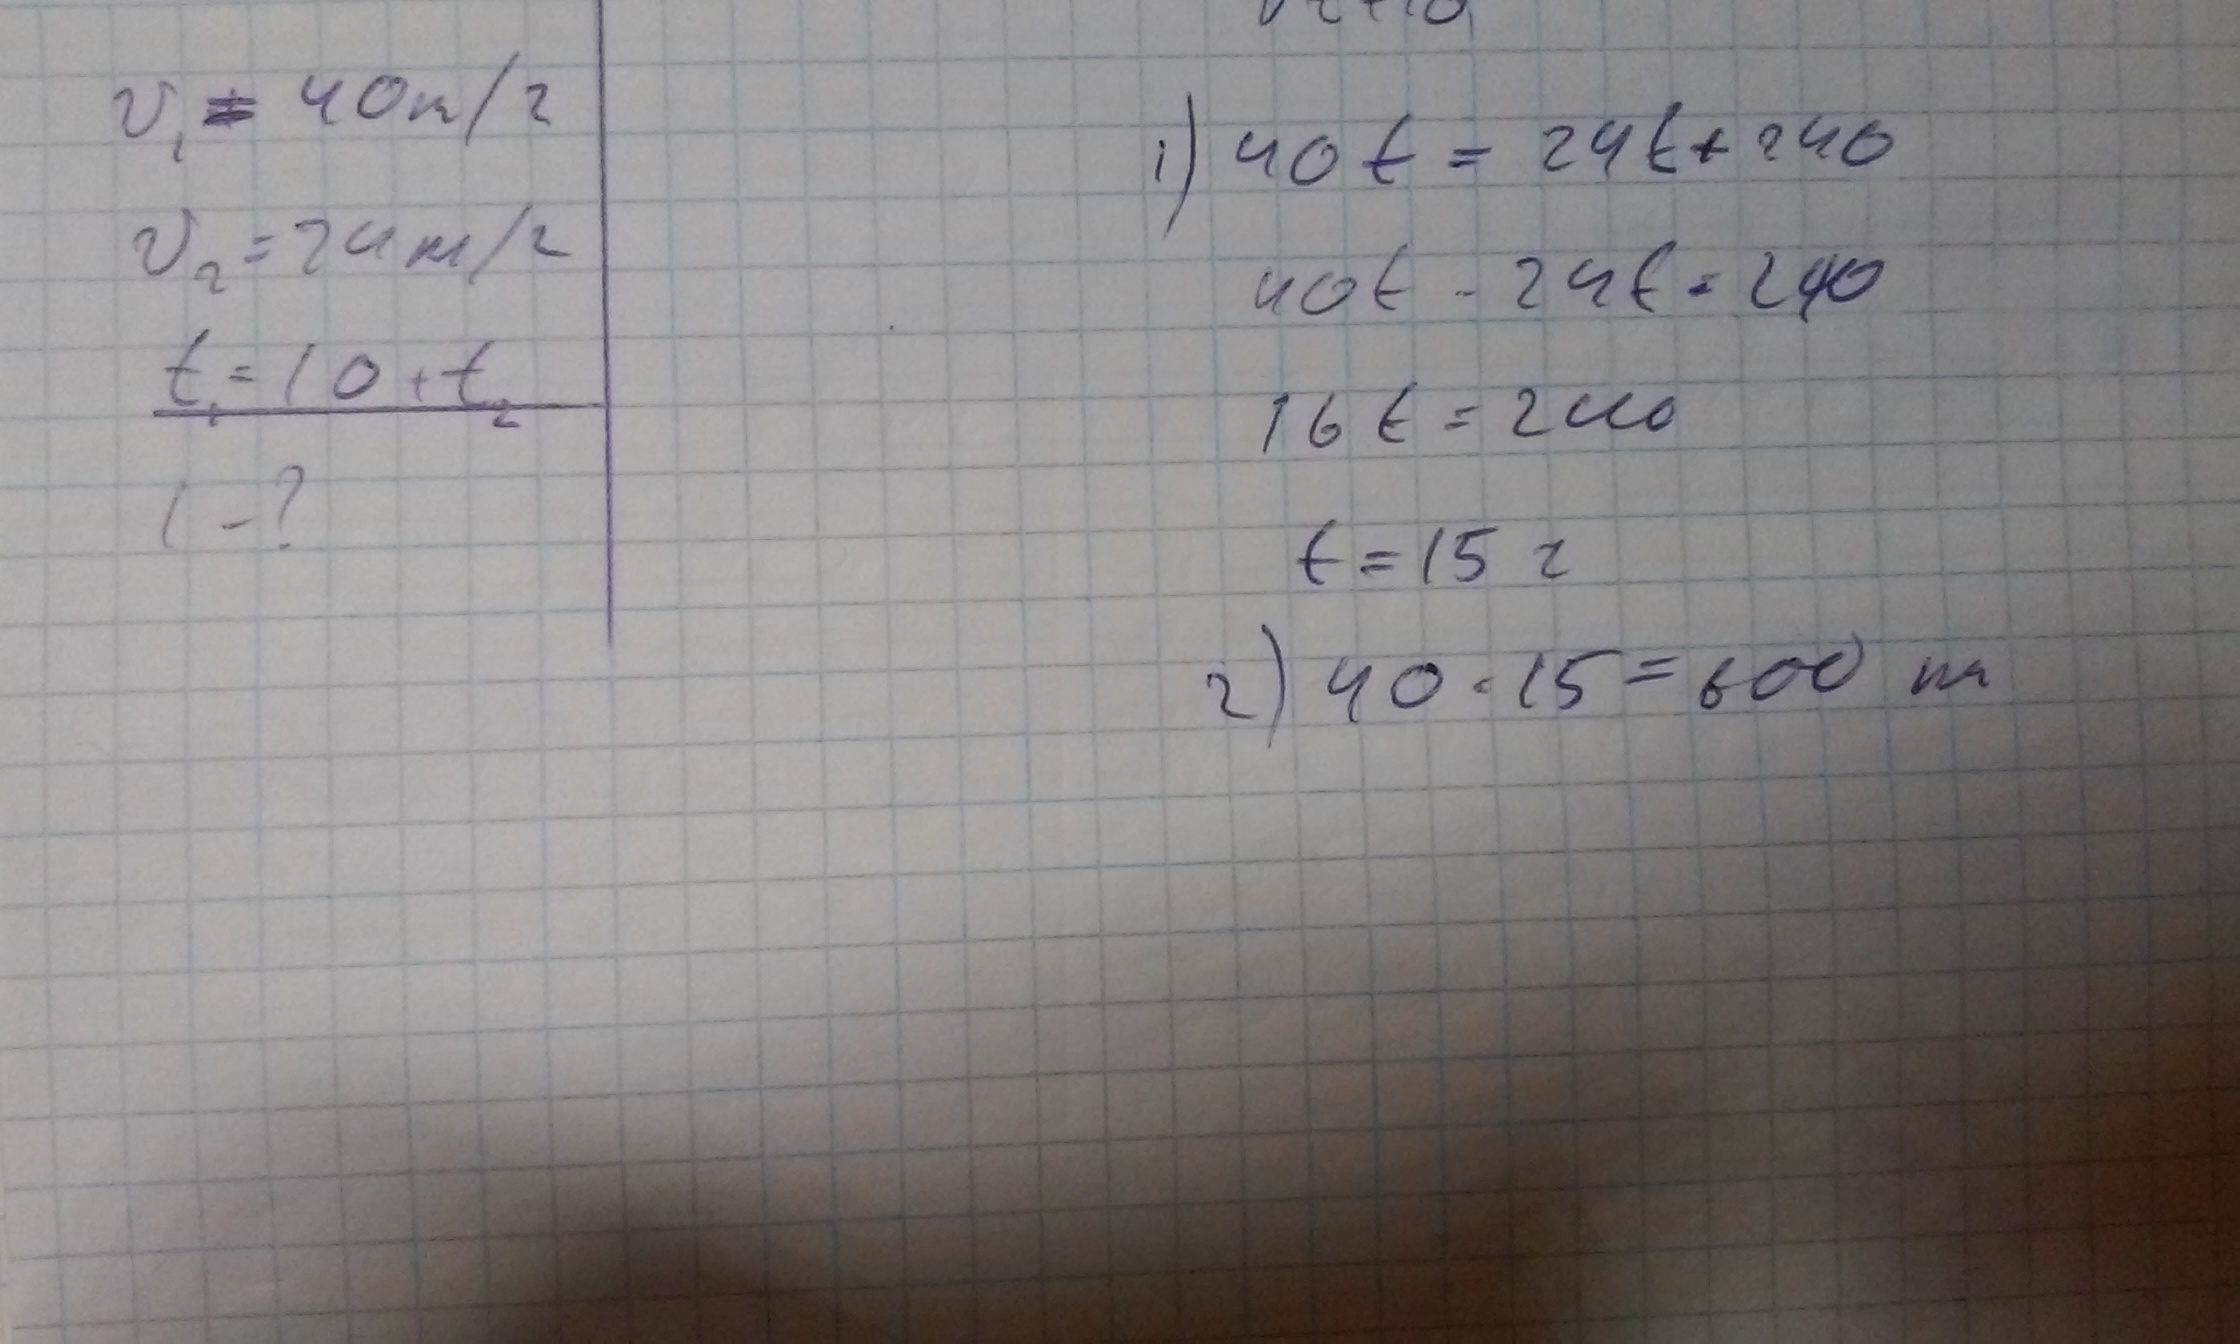 v₁ = 40 м/г
v₂ = 24 м/г
t₁ = 10 + t₂
l - ?
1) 40t = 24t + 240
40t - 24t = 240
16t = 240
t = 15 г
2) 40 · 15 = 600 м